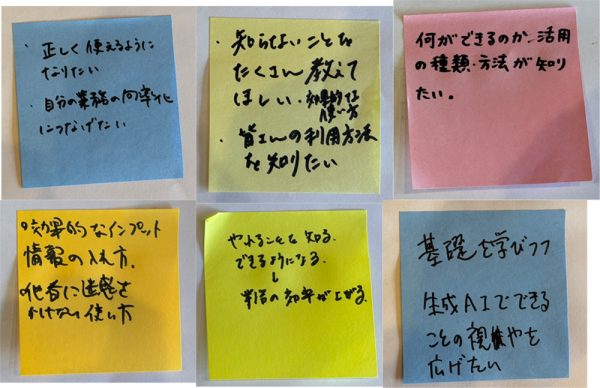 ・正しく使えるように
なりたい
・自分の業務の効率化
につなげたい
・知らないことを
たくさん教えて
ほしい・効果的な
使い方
・皆さんの利用方法
を知りたい
何ができるのか、活用
の種類・方法が知り
たい。
効果的なインプット
情報の入れ方、
他者に迷惑を
かけない使い方
やれることを知る、
できるようになる
↓
の効率が上がる
基礎を学びつつ
生成AIでできる
ことの視野を
広げたい